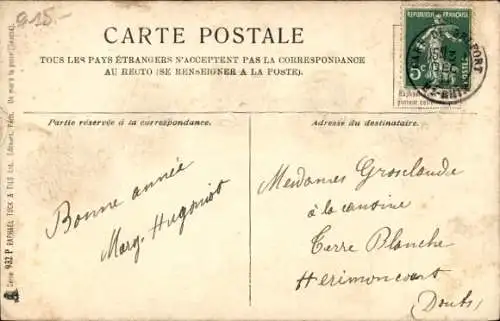 915-
CARTE POSTALE
TOUS LES PAYS ÉTRANGERS N'ACCEPTENT PAS LA CORRESPONDANCE
AU RECTO (SE RENSEIGNER A LA POSTE).
REPUBLIQUE FRANÇAISE
5c
Partie réservée à la correspondance.
Adresse du destinataire.
Bonne année
Marg. Hugoniot
Mesdames Grosclaude
à la cantine
Terre Blanche
Hérimoncourt
(Doubs)
Série 932 P RAPHAEL TUCK & FILS Ltd. Editeurs, Paris.